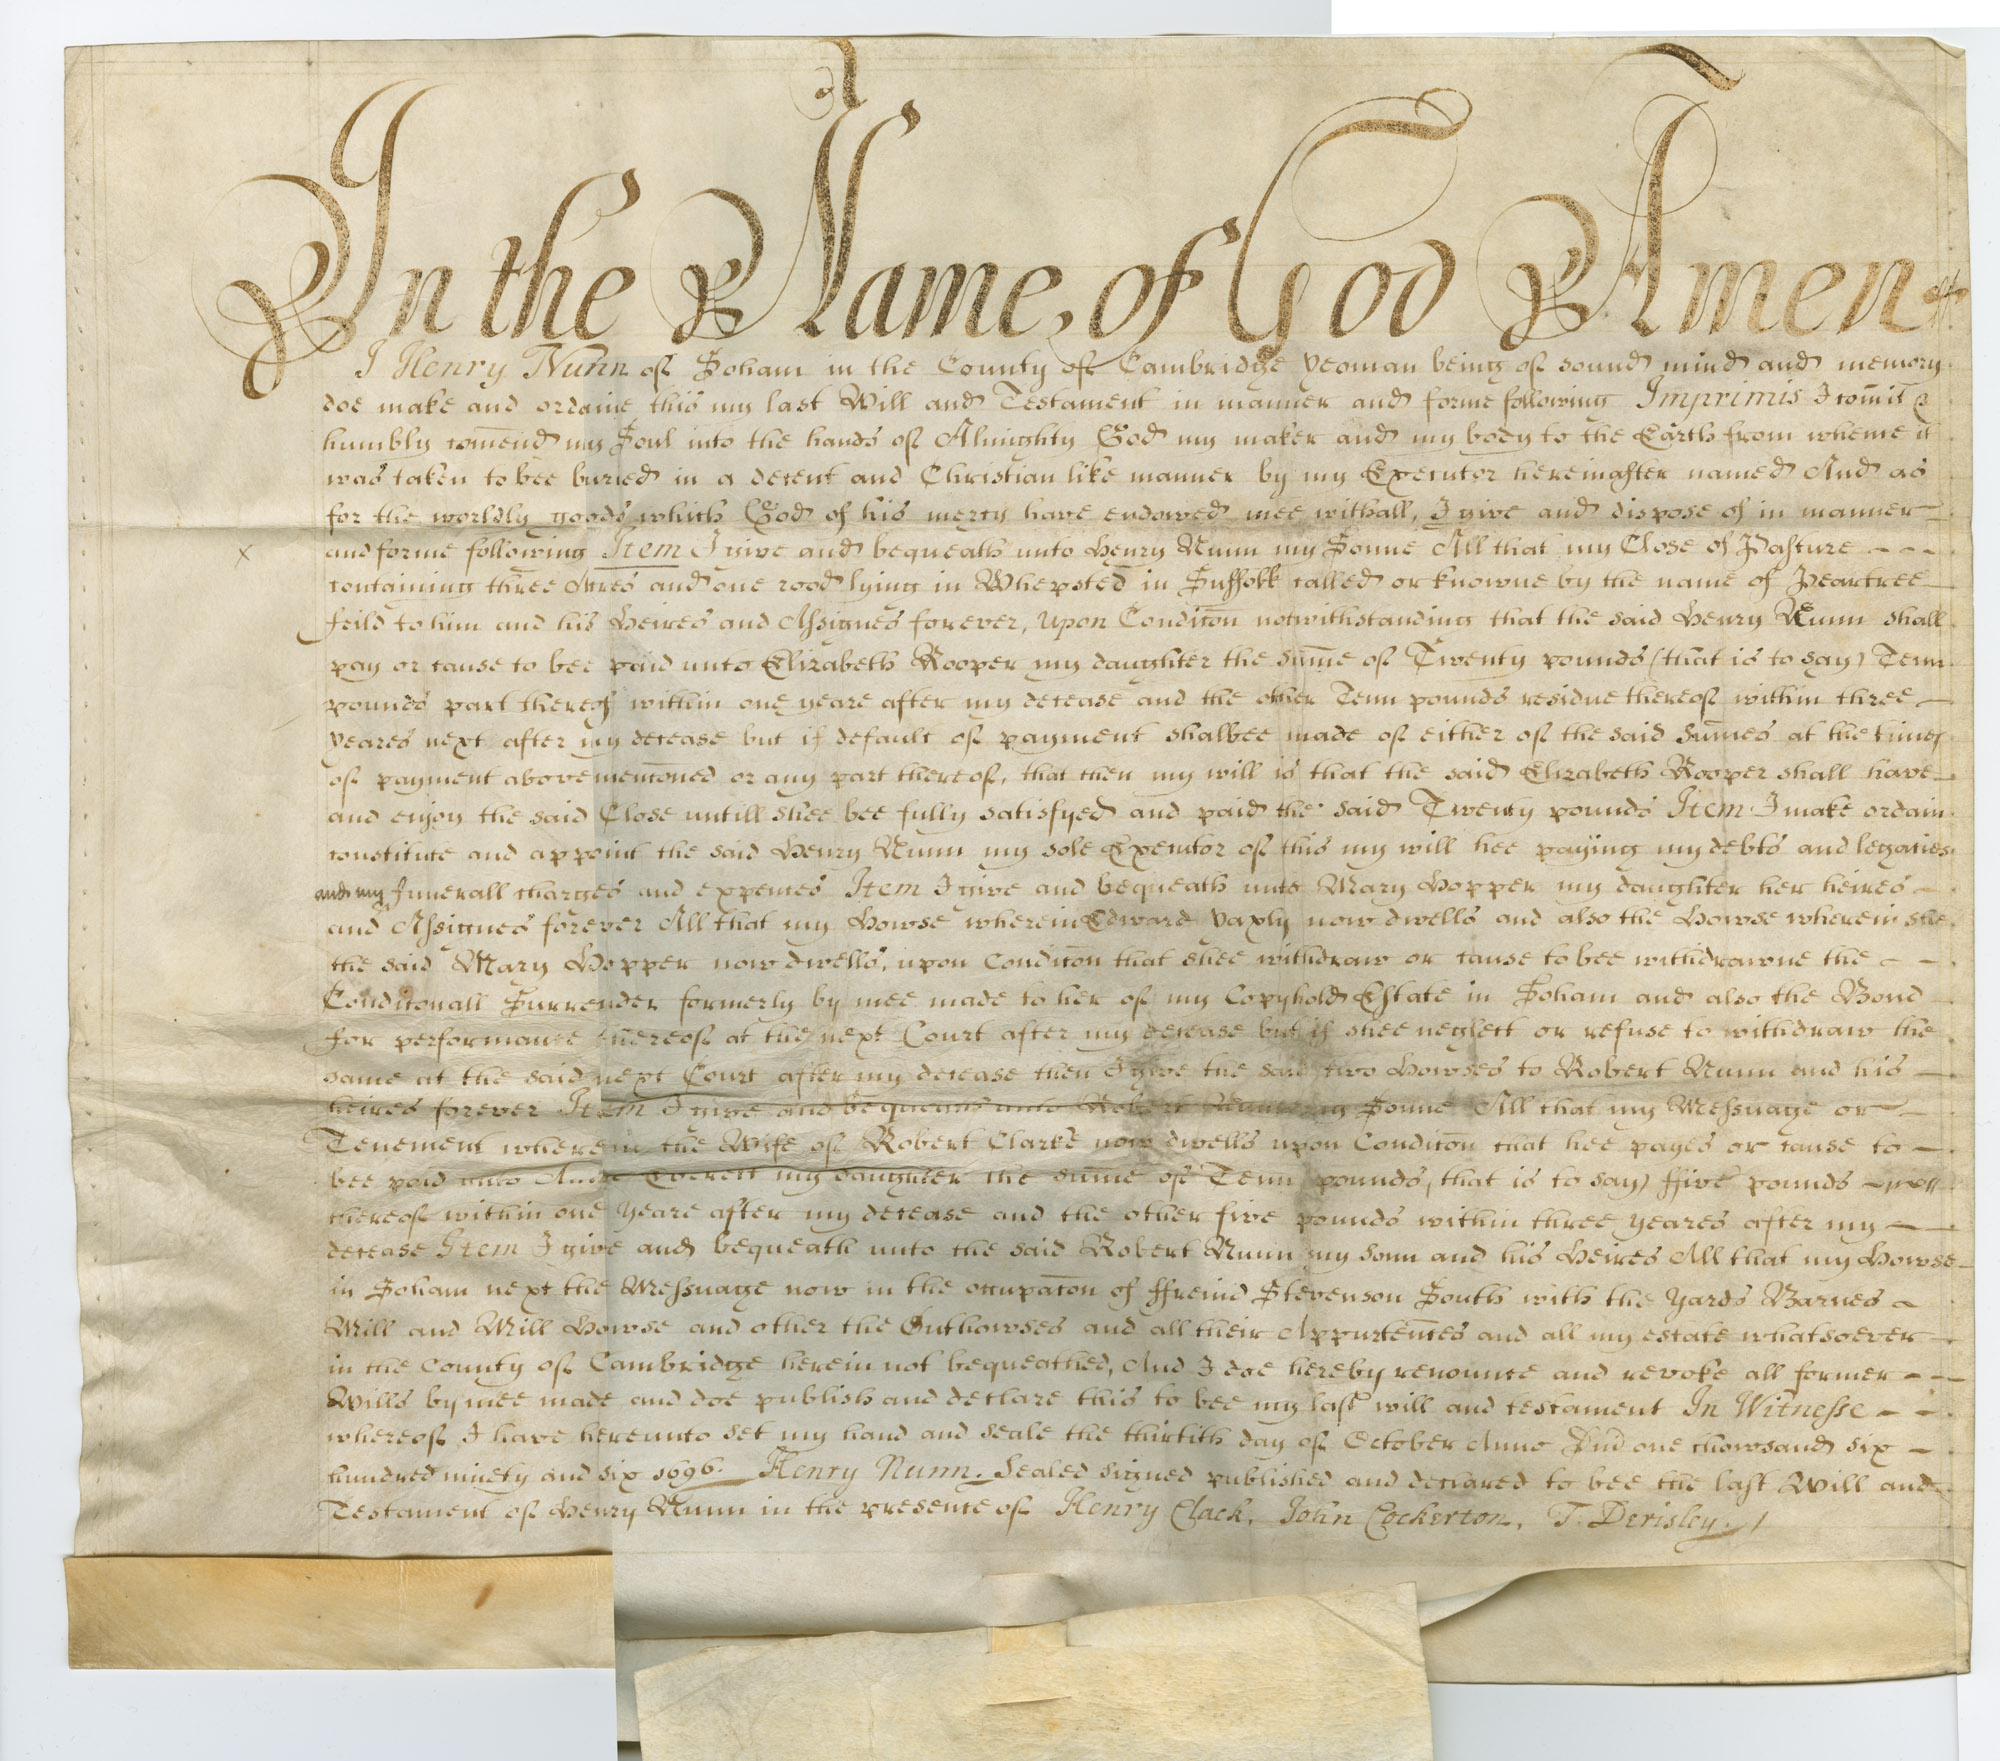 In the Name, of God Amen
I Henry Nunn of Soham in the County of Cambridge Yeoman being of sound mind and memory
doe make and ordaine this my last Will and Testament in manner and forme following Imprimis I comit &
humbly comend my Soul into the hands of Almighty God my maker and my body to the Earth from whence it
was taken to bee buried in a decent and Christian like manner by my Executor hereinafter named And as
for the worldly goods which God of his mercy have endowed mee withall, I give and dispose of in manner
and forme following Item I give and bequeath unto Henry Nunn my Sonne All that my Close of Pasture
containing three Acres and one rood lying in Whepsted in Suffolk called or knowne by the name of Peartree
feild to him and his Heires and Assignes forever, upon Conditon notwithstanding that the said Henry Nunn shall
pay or cause to bee paid unto Elizabeth Rooper my daughter the sume of Twenty pounds (that is to say) Tenn
pounds part thereof within one yeare after my decease and the other Tenn pounds residue thereof within three
yeares next after my decease but if default of payment shalbee made of either of the said sumes at the times
of payment abovementoned or any part thereof, that then my will is that the said Elizabeth Rooper shall have
and enjoy the said Close untill shee bee fully satisfyed and paid the said Twenty pounds Item I make ordain
constitute and appoint the said Henry Nunn my sole Executor of this my will hee paying my debts and legacies
and my funerall charges and expences Item I give and bequeath unto Mary Hopper my daughter her heires
and Assignes forever All that my Howse wherein Edward Yaxly now dwells and also the Howse wherein she
the said Mary Hopper now dwells, upon Conditon that shee withdraw or cause to bee withdrawne the
Conditonall Surrender formerly by mee made to her of my Copyhold Estate in Soham and also the Bond
for performance thereof at the next Court after my decease but if shee neglect or refuse to withdraw the
same at the said next Court after my decease then I give the said two Howses to Robert Nunn and his
heires forever Item I give and bequeath unto Robert Nunn my Sonne All that my Messuage or
Tenement wherein the Wife of Robert Clarke now dwells upon Conditon that hee payes or cause to
bee paid unto Anne Everett my daughter the sume of Tenn pounds, (that is to say) ffive pounds part
thereof within one yeare after my decease and the other five pounds within three yeares after my
decease Item I give and bequeath unto the said Robert Nunn my sonn and his Heires All that my Howse
in Soham next the Messuage now in the occupaton of ffreind Stevenson South with the Yards Barnes
Mill and Mill Howse and other the Outhowses and all their Appurtences and all my estate whatsoever
in the County of Cambridge herein not bequeathed, And I doe hereby renounce and revoke all former
Wills by mee made and doe publish and declare this to bee my last will and testament In Witnesse
whereof I have hereunto set my hand and seale the thirtith day of October Anno Dnd one thowsand six
hundred ninety and six 1696. Henry Nunn. Sealed signed published and declared to bee the last Will and
Testament of Henry Nunn in the presence of Henry Clack, John Cockerton, T. Derisley.